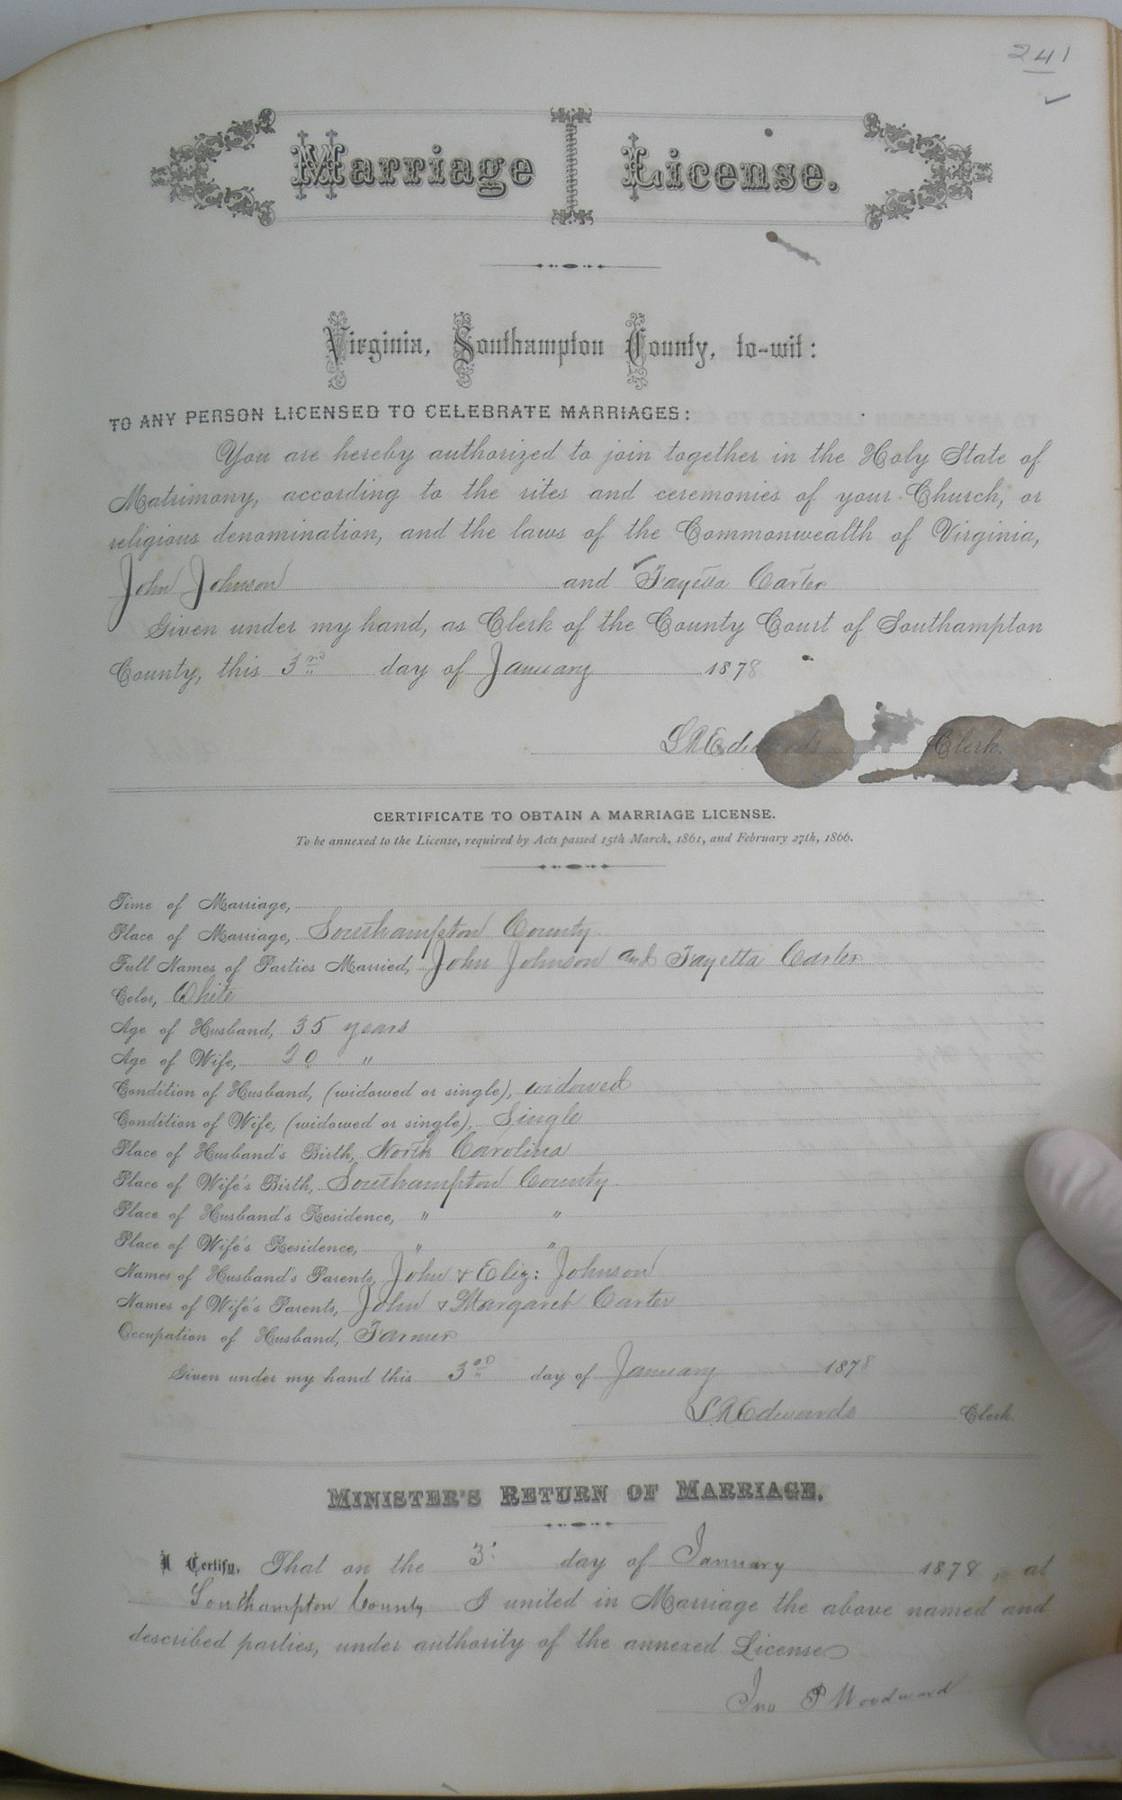 241
Marriage License.
Virginia, Southampton County, to-wit:
TO ANY PERSON LICENSED TO CELEBRATE MARRIAGES:
You are hereby authorized to join together in the Holy State of
Matrimony, according to the rites and ceremonies of your Church, or
religious denomination, and the laws of the Commonwealth of Virginia,
John Johnson and Fayetta Carter
Given under my hand, as Clerk of the County Court of Southampton
County, this 3rd day of January 1878
L R Edwards Clerk.
CERTIFICATE TO OBTAIN A MARRIAGE LICENSE.
To be annexed to the License, required by Acts passed 15th March, 1861, and February 27th, 1866.
Time of Marriage,
Place of Marriage, Southampton County
Full Names of Parties Married, John Johnson and Fayetta Carter
Color, White
Age of Husband, 35 years
Age of Wife, 20 "
Condition of Husband, (widowed or single), widowed
Condition of Wife, (widowed or single), Single
Place of Husband's Birth, North Carolina
Place of Wife's Birth, Southampton County
Place of Husband's Residence, " "
Place of Wife's Residence, " "
Names of Husband's Parents, John & Eliz: Johnson
Names of Wife's Parents, John & Margaret Carter
Occupation of Husband, Farmer
Given under my hand this 3rd day of January 1878
L R Edwards Clerk.
MINISTER'S RETURN OF MARRIAGE.
I Certify, That on the 3 day of January 1878, at
Southampton County I united in Marriage the above named and
described parties, under authority of the annexed License
Jno P Woodward